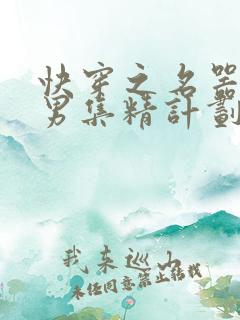 快穿之名器
男集精計劃
我来巡山
未经同意禁止转载